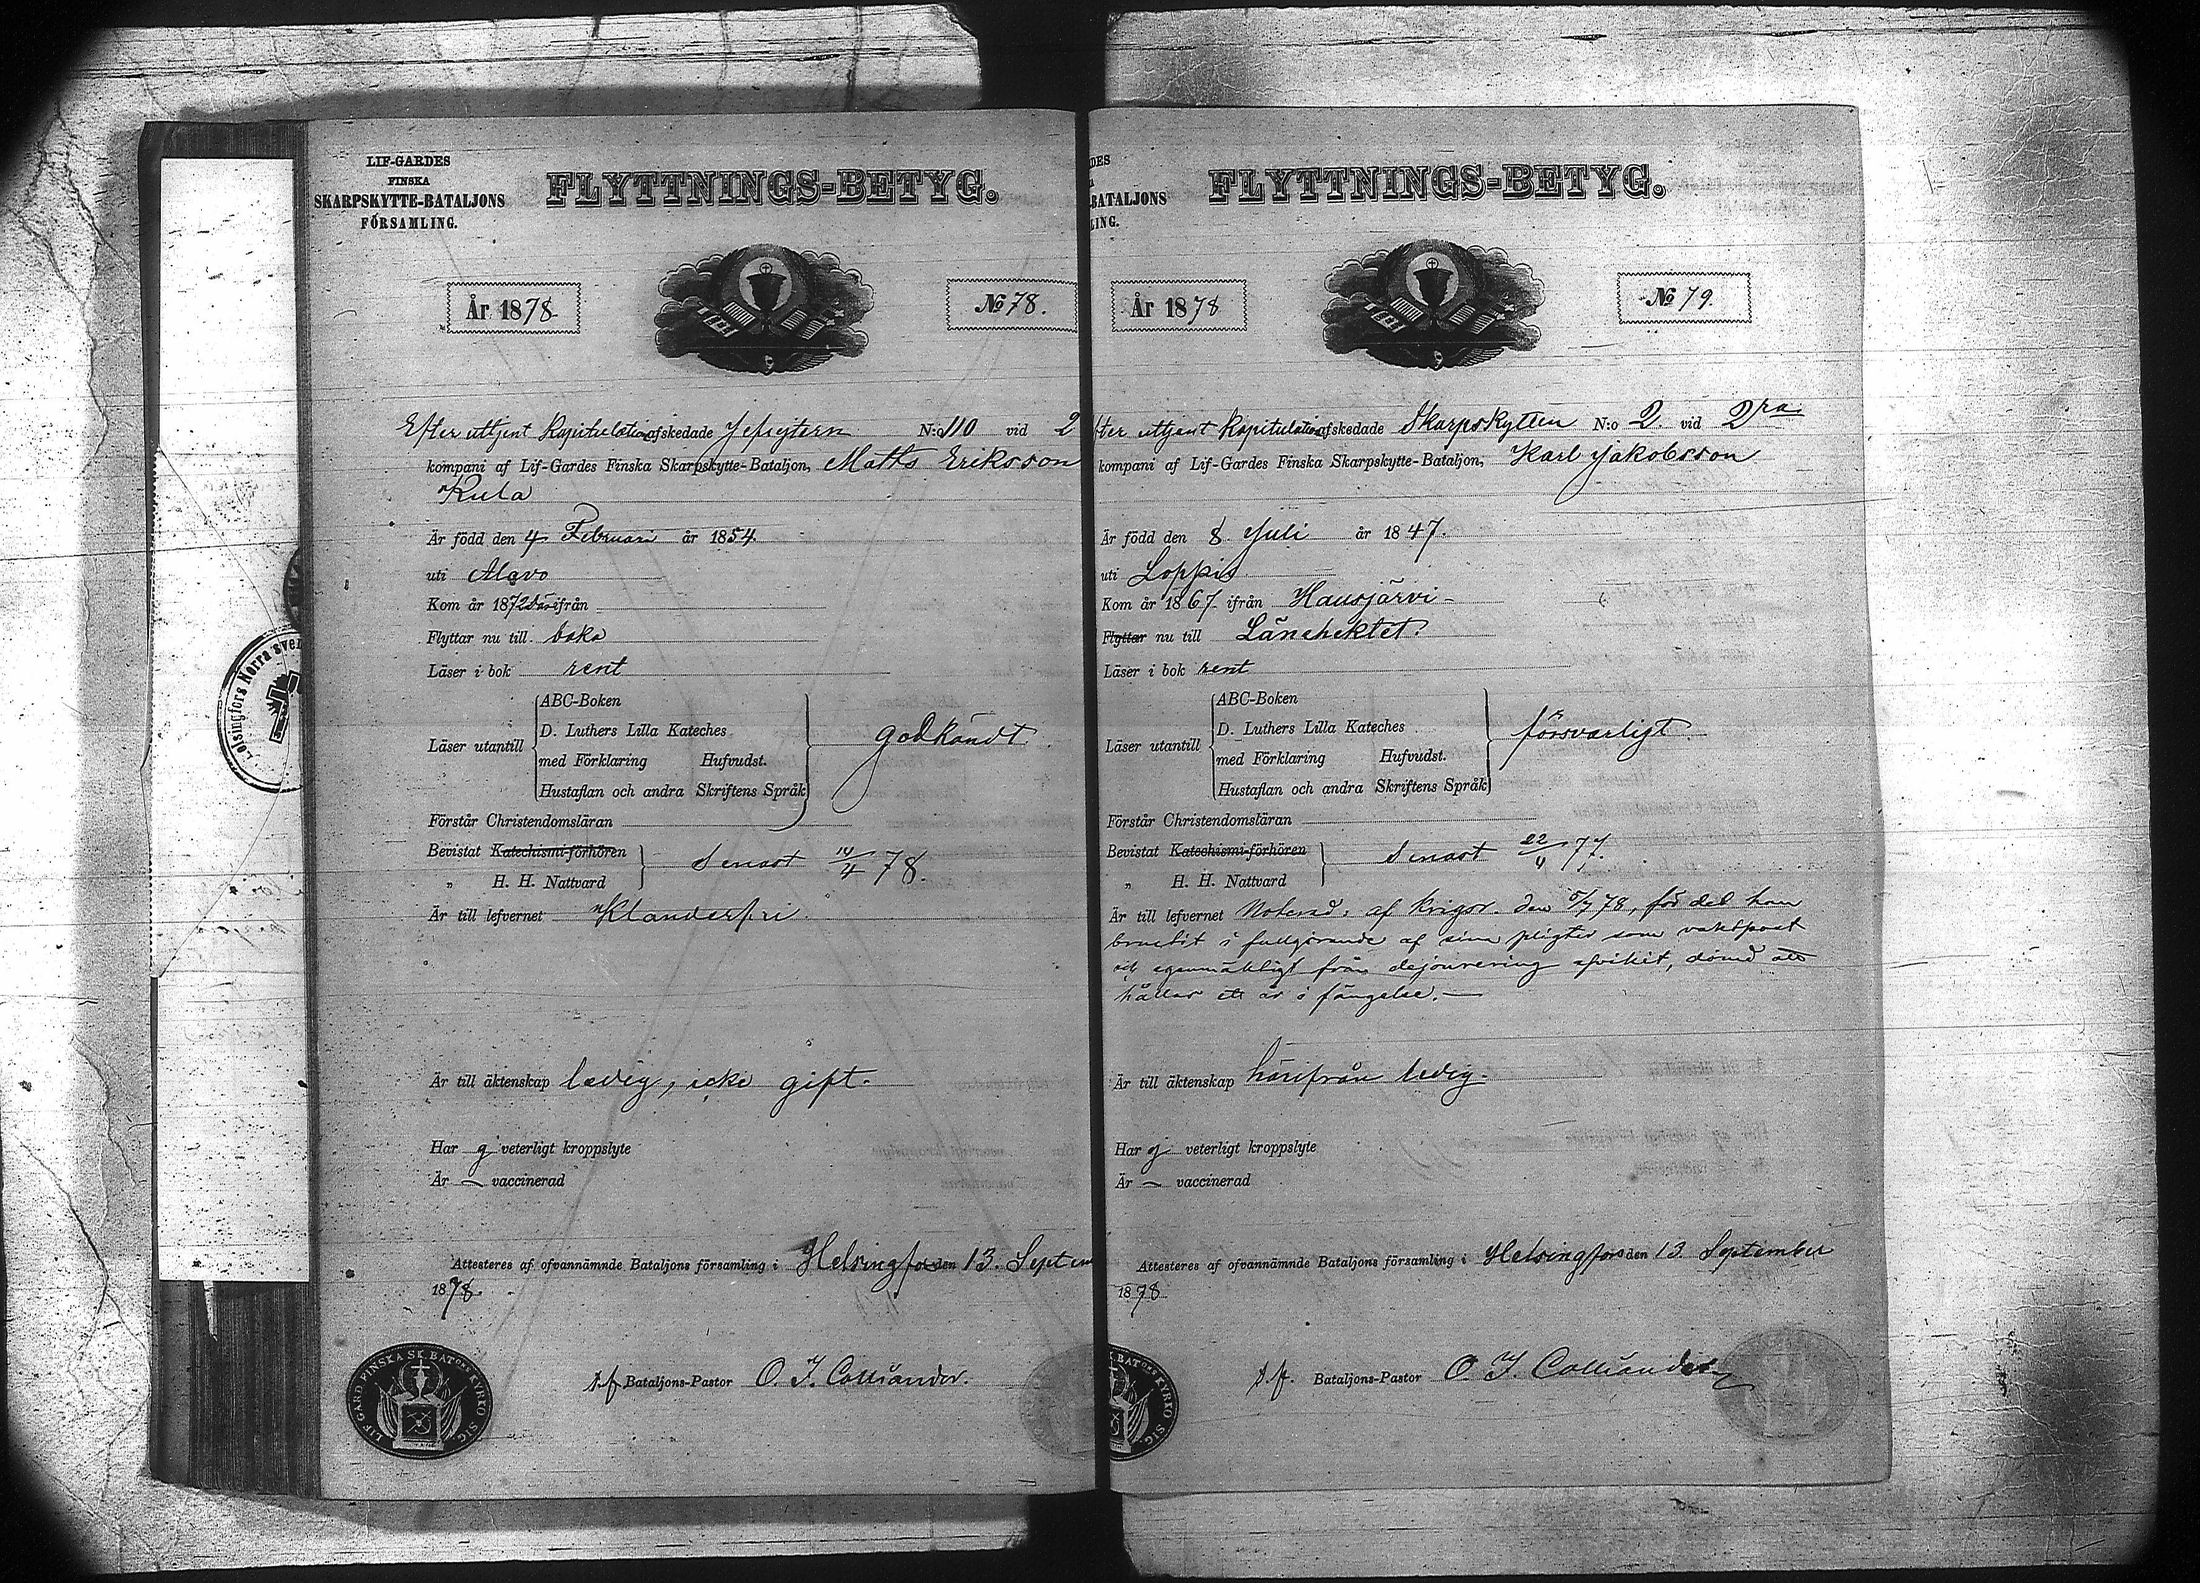 LIF-GARDES
FINSKA
SKARPSKYTTE-BATALJONS
FÖRSAMLING.
FLYTTNINGS-BETYG.
År 1878
No 78.
Efter uttjent Kapitulation afskedade N:o 110 vid 2
kompani af Lif-Gardes Finska Skarpskytte-Bataljon, Matts Eriksson
Kula
Är född den 4 Februari år 1854.
uti Alavo
Kom år 1872 därifrån
Flyttar nu till
Läser i bok rent
Läser utantill
ABC-Boken
D. Luthers Lilla Kateches
med Förklaring Hufvudst.
Hustaflan och andra Skriftens Språk
godkändt.
Förstår Christendomsläran
Bevistat Katechismi-förhören
„ H. H. Nattvard
Senast 14/4 78.
Är till lefvernet Klanderfri
Är till äktenskap ledig, icke gift.
Har ej veterligt kroppslyte
Är — vaccinerad
Attesteres af ofvannämnde Bataljons församling i Helsingfors den 13. Septem
1878.
Bataljons-Pastor O. I. Colliander.
LIF GARD FINSKA SK. BAT:ONS KYRKO SIG.
Helsingfors Norra sven
DES
BATALJONS
LING.
FLYTTNINGS-BETYG.
År 1878
No 79.
fter uttjent Kapitulation afskedade Skarpskytten N:o 2 vid 2ra
kompani af Lif-Gardes Finska Skarpskytte-Bataljon, Karl Jakobsson
Är född den 8 Juli år 1847.
uti Loppis
Kom år 1867 ifrån Hausjärvi
Flyttar nu till Länehäktet.
Läser i bok rent
Läser utantill
ABC-Boken
D. Luthers Lilla Kateches
med Förklaring Hufvudst.
Hustaflan och andra Skriftens Språk
försvarligt
Förstår Christendomsläran
Bevistat Katechismi-förhören
„ H. H. Nattvard
Senast 22/4 77.
Är till lefvernet Noterad: af Krigsr. den 5/7 78, för det han
brustit i fullgörande af sina pligter som vaktpost
och egenmäktigt från dejourering afvikit, dömd att
hållas ett år i fängelse. —
Är till äktenskap härifrån ledig.
Har ej veterligt kroppslyte
Är — vaccinerad
Attesteres af ofvannämnde Bataljons församling i Helsingfors den 13 September
1878
Bataljons-Pastor O. I. Colliander
BAT:ONS KYRKO SIG.